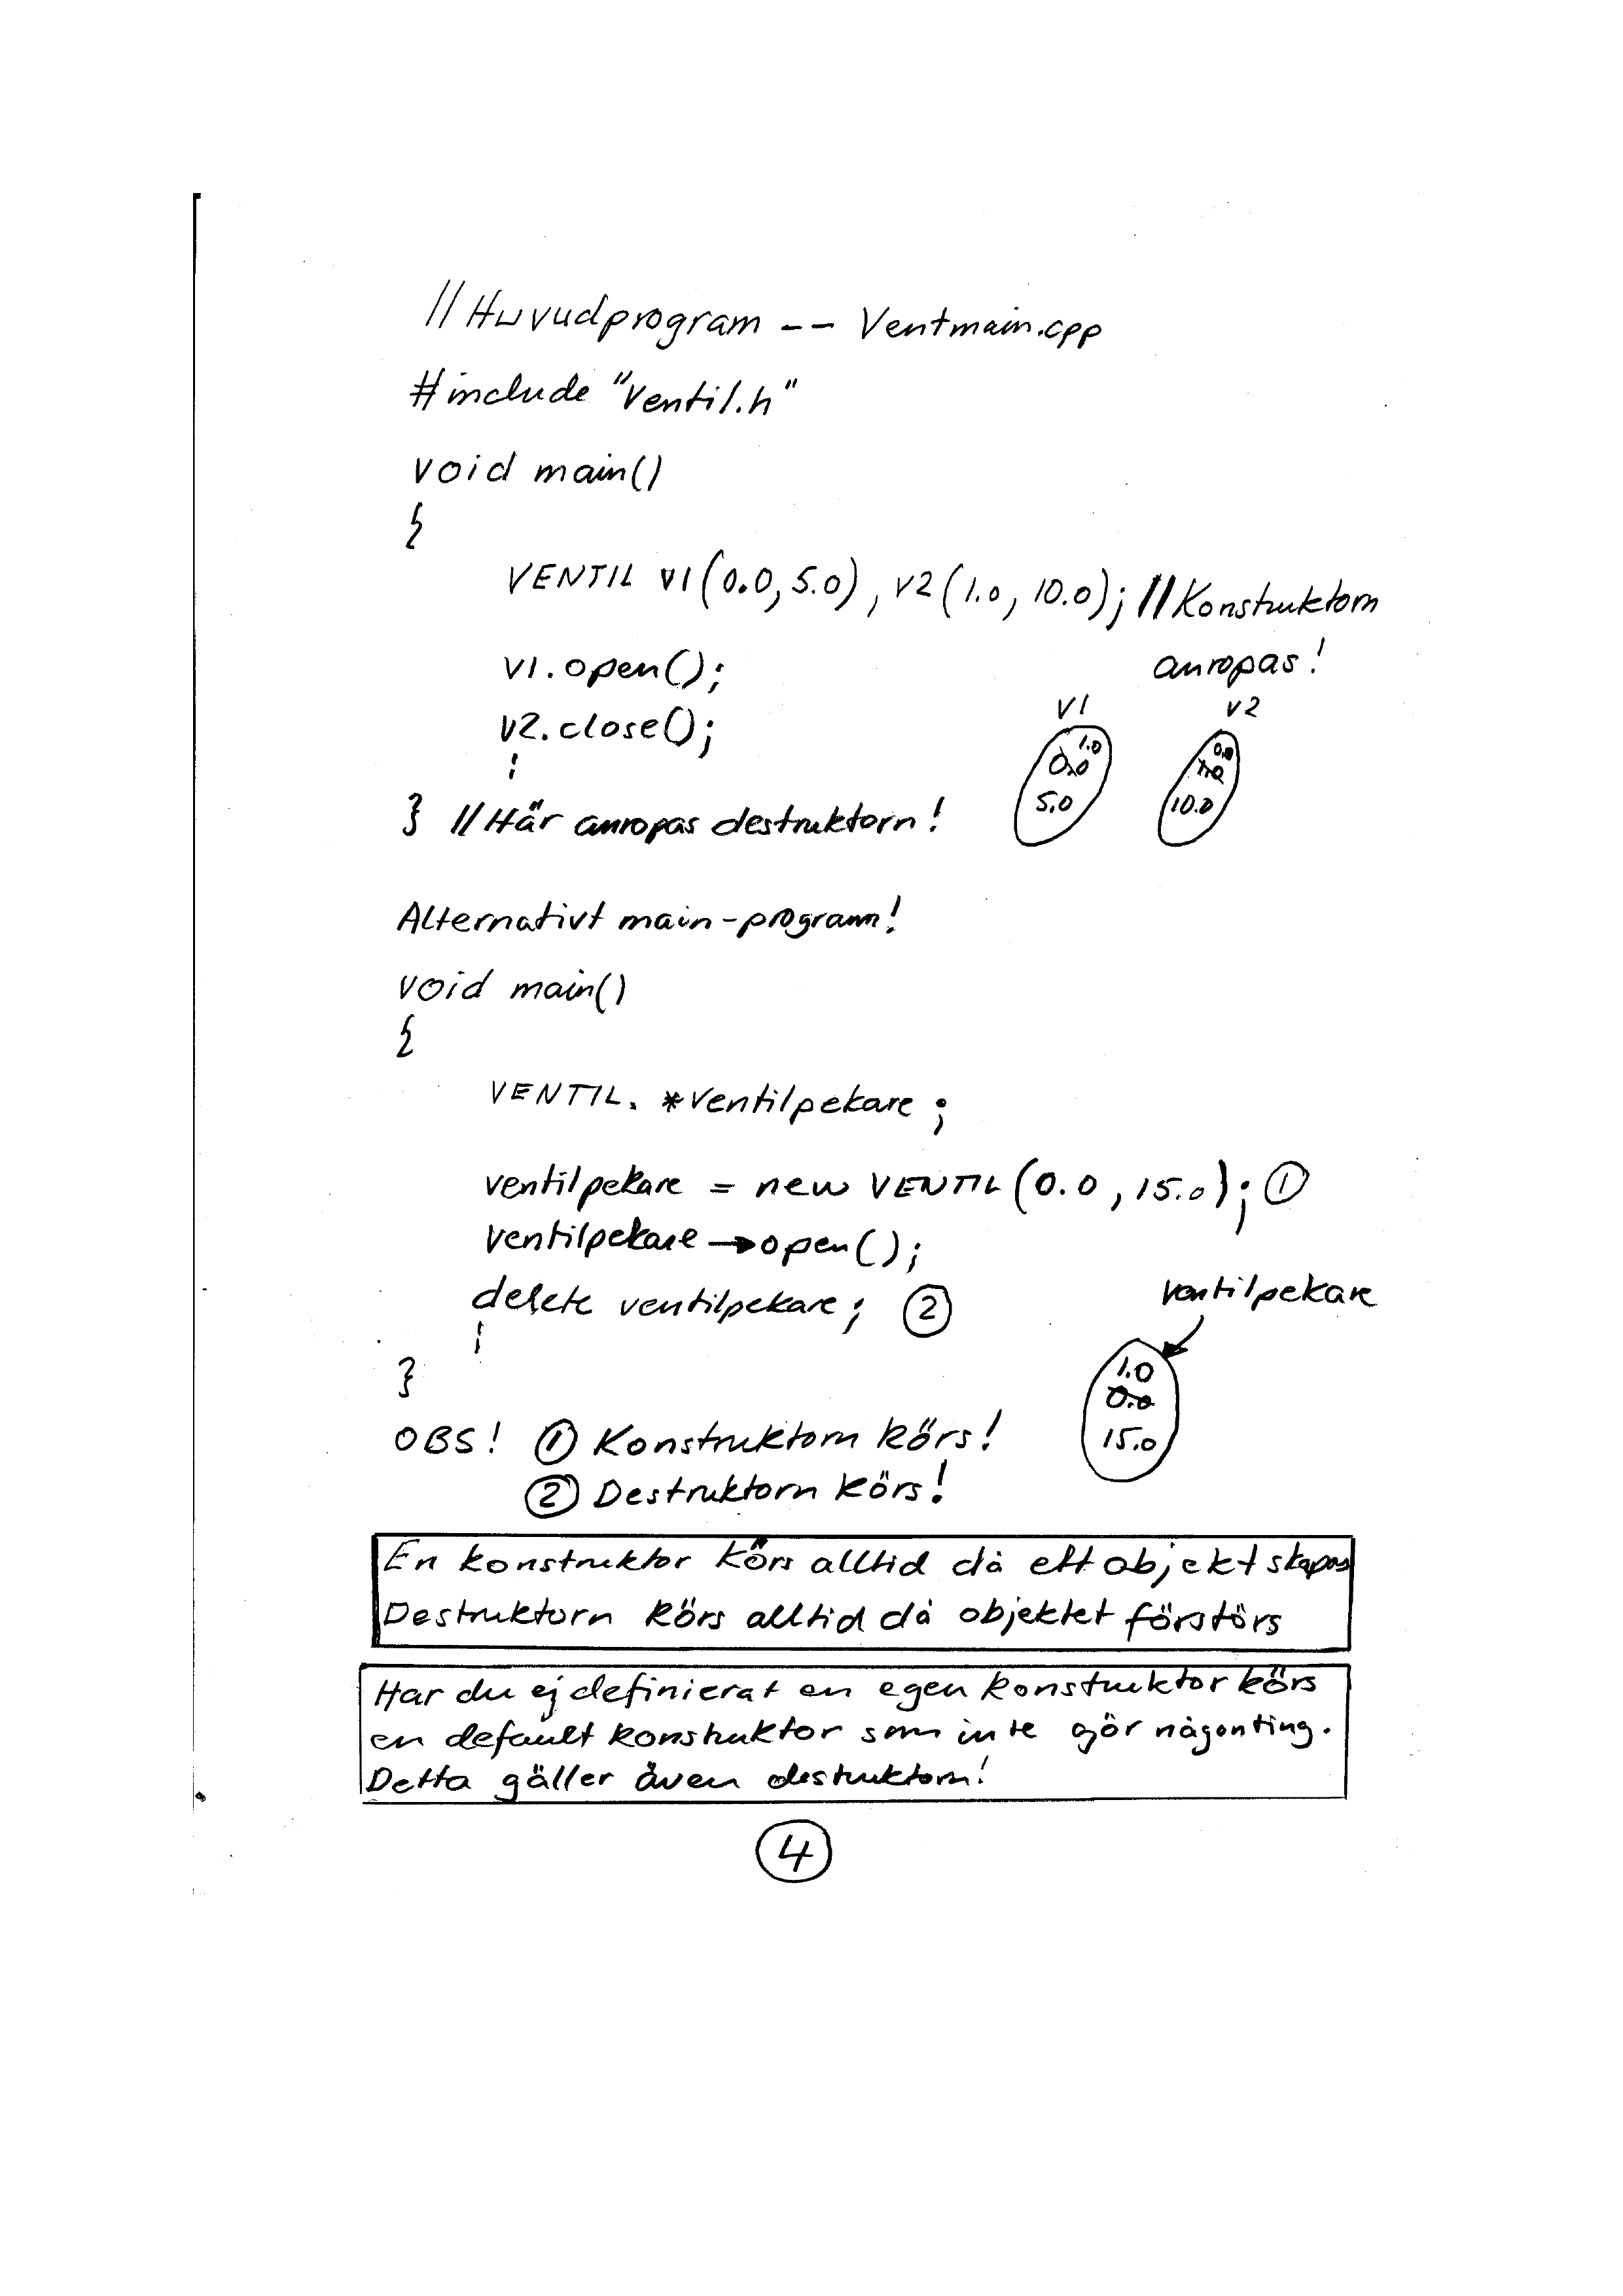 //Huvudprogram -- Ventmain.cpp
#include "Ventil.h"
void main()
{
VENTIL v1(0.0, 5.0), v2(1.0, 10.0); //Konstruktorn
anropas!
v1.open();
v1 v2
v2.close();
1.0 0.0
0.0 1.0
5.0 10.0
} //Här anropas destruktorn!
Alternativt main-program!
void main()
{
VENTIL. *ventilpekare;
ventilpekare = new VENTIL(0.0, 15.0); ①
ventilpekare→open();
delete ventilpekare; ②
ventilpekare
}
1.0
0.0
15.0
OBS! ① Konstruktorn körs!
② Destruktorn körs!
En konstruktor körs alltid då ett objekt skapas
Destruktorn körs alltid då objektet förstörs
Har du ej definierat en egen konstruktor körs
en default konstruktor som inte gör någonting.
Detta gäller även destruktorn!
④